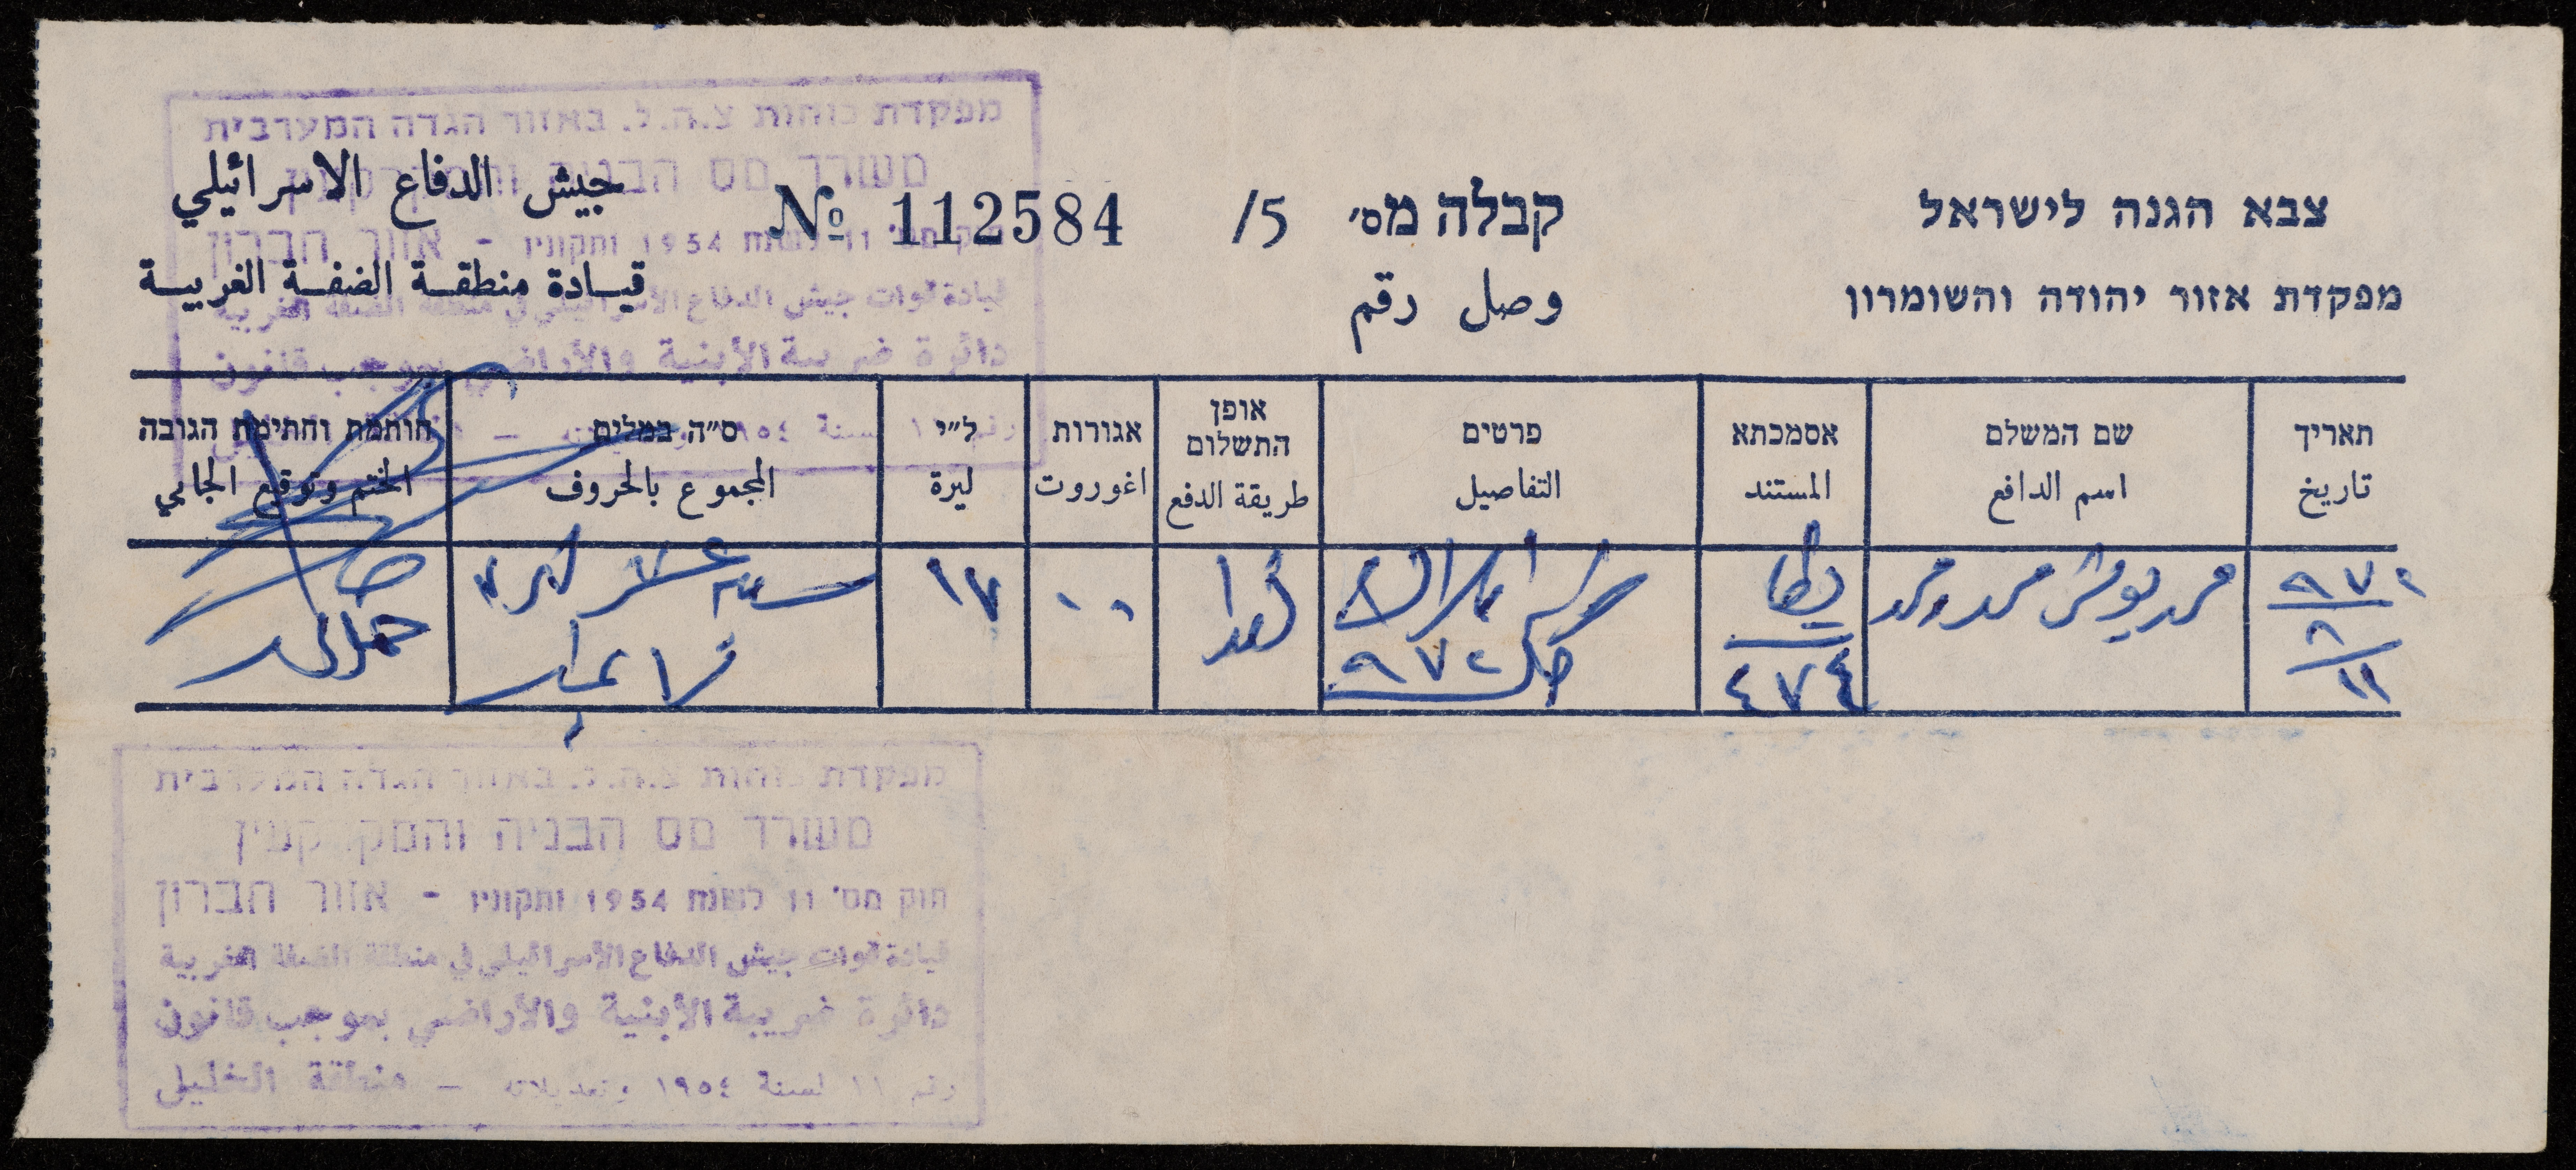 צבא הגנה לישראל
מפקדת אזור יהודה והשומרון
קבלה מס׳ 5/ № 112584
وصل رقم
جيش الدفاع الاسرائيلي
قيادة منطقة الضفة الغربية
תאריך שם המשלם אסמכתא פרטים אופן התשלום אגורות ל״י ס״ה במלים חותמת וחתימת הגובה
تاريخ اسم الدافع المستند التفاصيل طريقة الدفع اغوروت ليرة المجموع بالحروف الختم وتوقيع الجابي
٩٧٢ محمد يونس محمد محمد يطا نقدا ٠٠ ١٧ سبعة عشر ليره
٨
١١ ٤٧٤ ٩٧٢ لا غير
מפקדת כוחות צ.ה.ל. באזור הגדה המערבית
משרד מס הבניה והמקרקעין
חוק מס׳ 11 לשנת 1954 ותקוניו - אזור חברון
قيادة قوات جيش الدفاع الأسرائيلي في منطقة الضفة الغربية
دائرة ضريبة الأبنية والأراضي بموجب قانون
מפקדת כוחות צ.ה.ל. באזור הגדה המערבית
משרד מס הבניה והמקרקעין
חוק מס׳ 11 לשנת 1954 ותקוניו - אזור חברון
قيادة قوات جيش الدفاع الأسرائيلي في منطقة الضفة الغربية
دائرة ضريبة الأبنية والأراضي بموجب قانون
رقم ١١ لسنة ١٩٥٤ وتعديلاته – منطقة الخليل